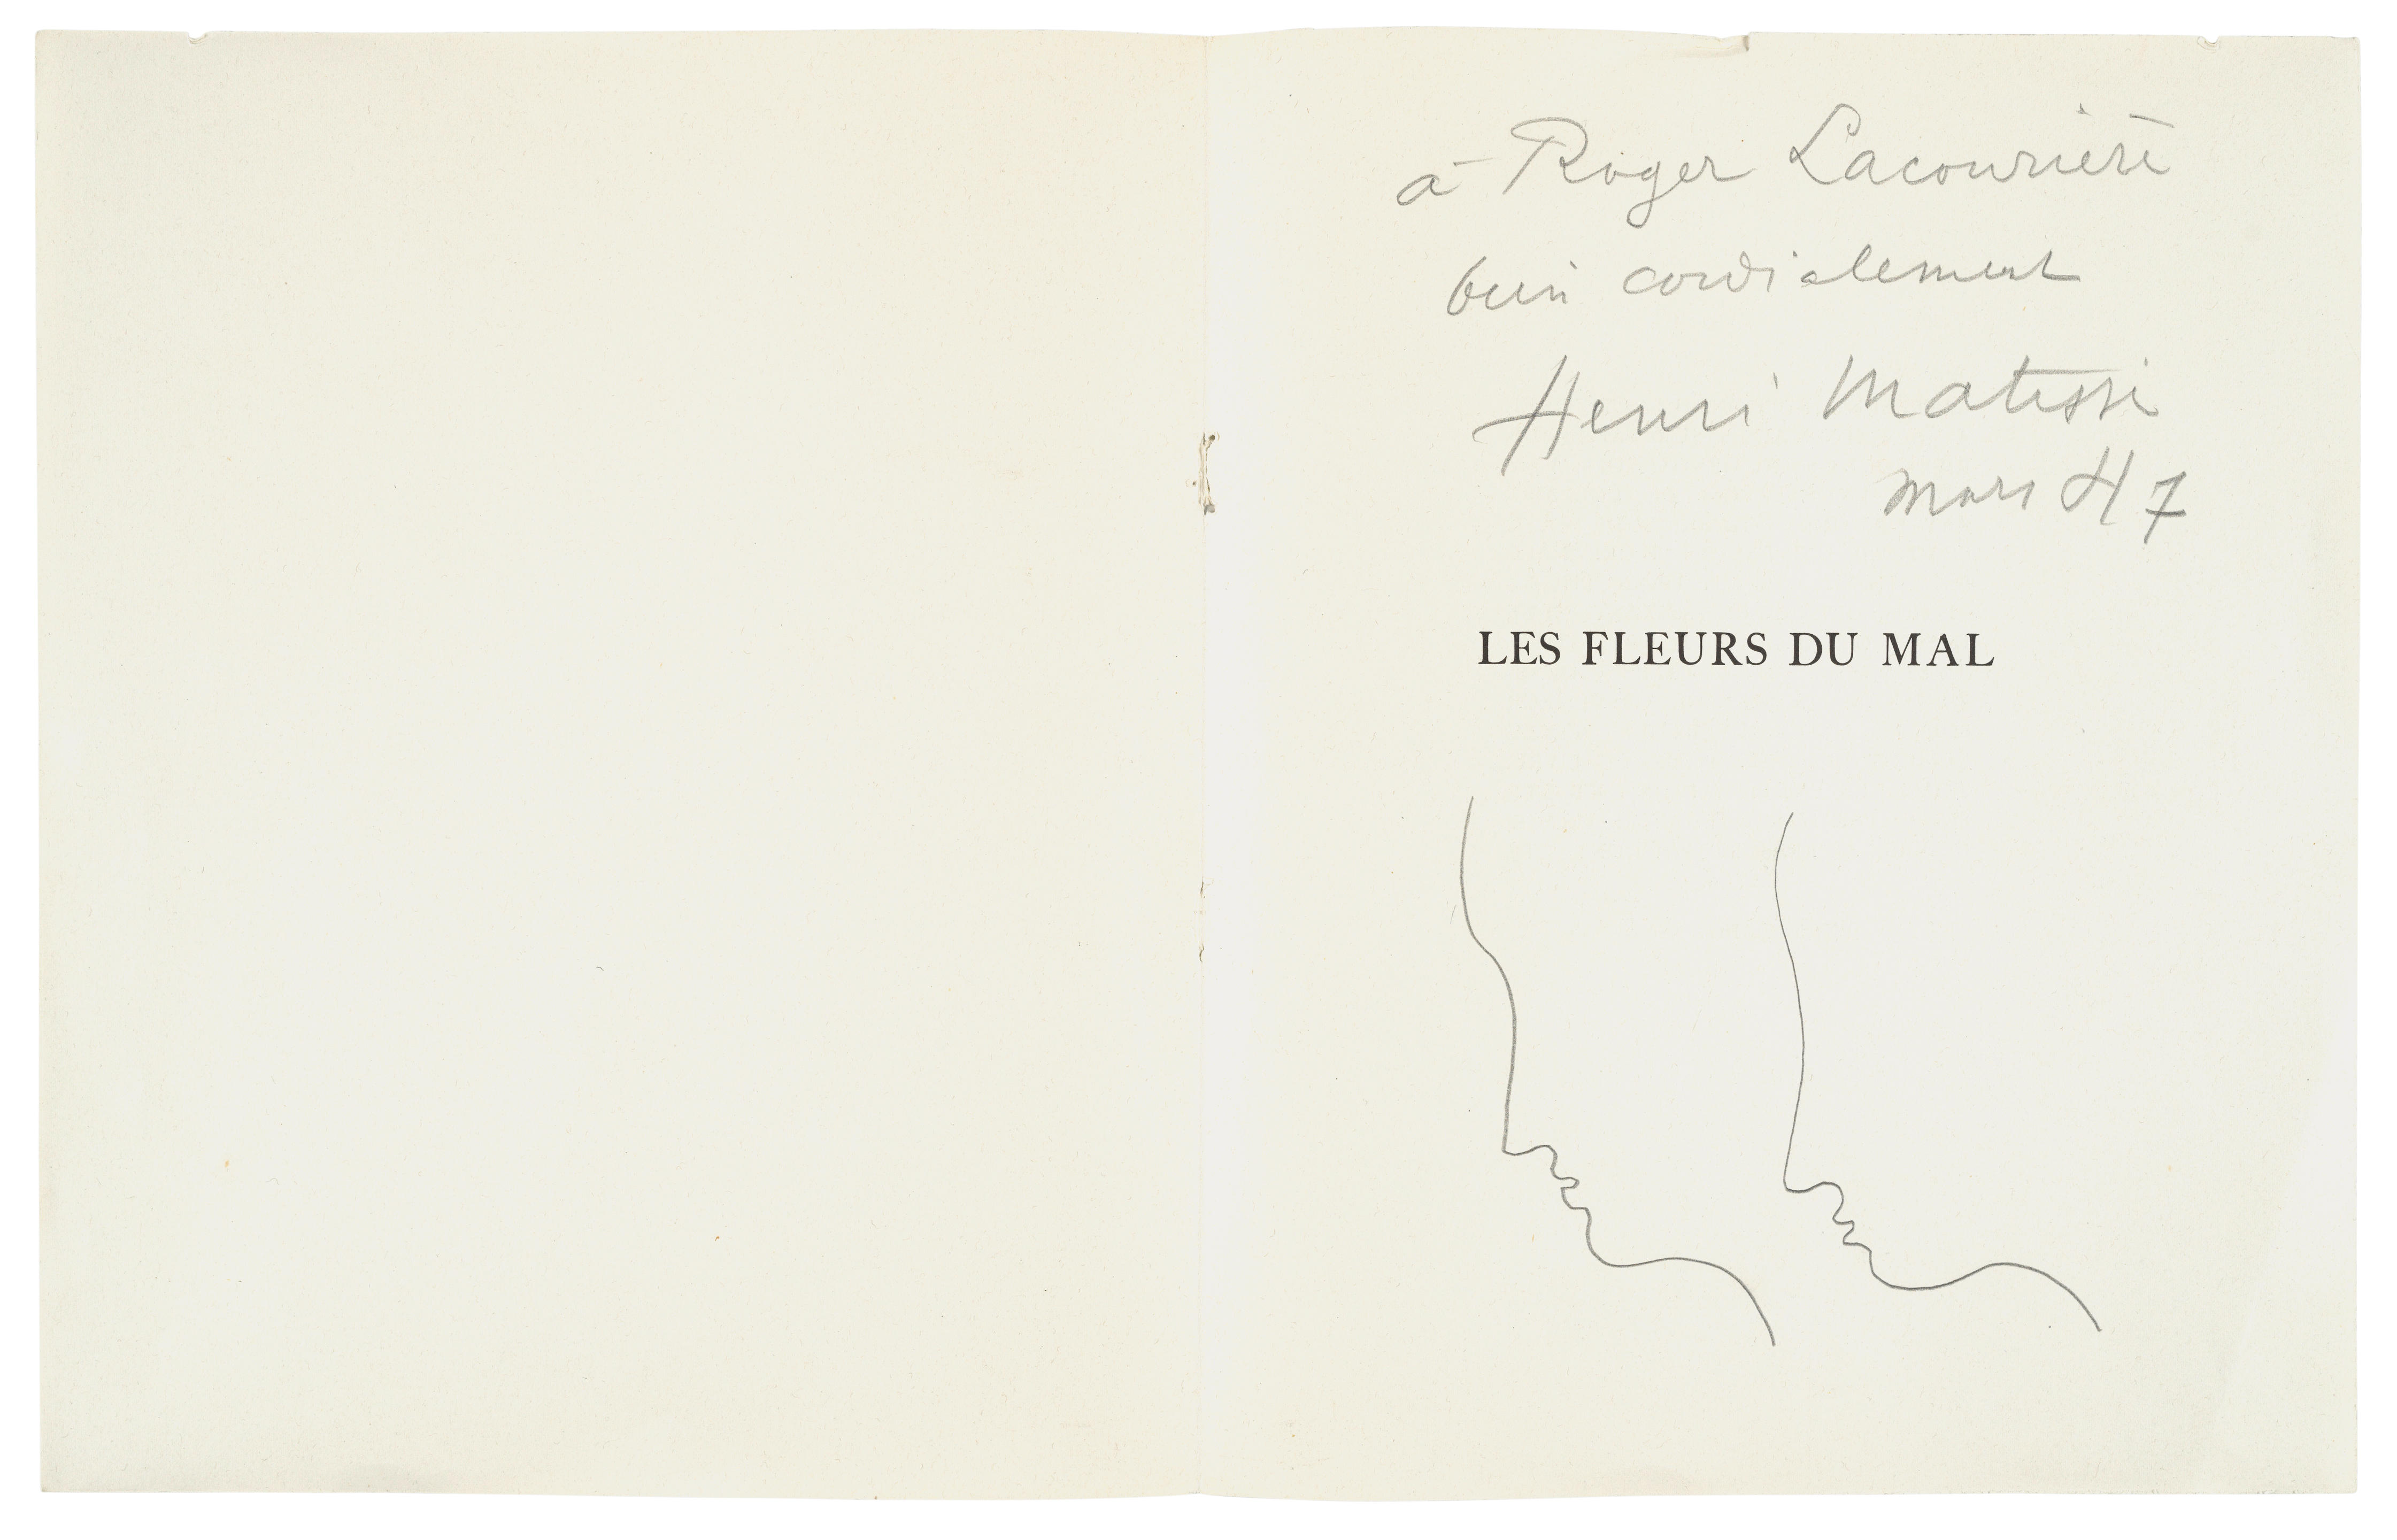 à Roger Lacourière
bien cordialement
Henri Matisse
mars 47
LES FLEURS DU MAL